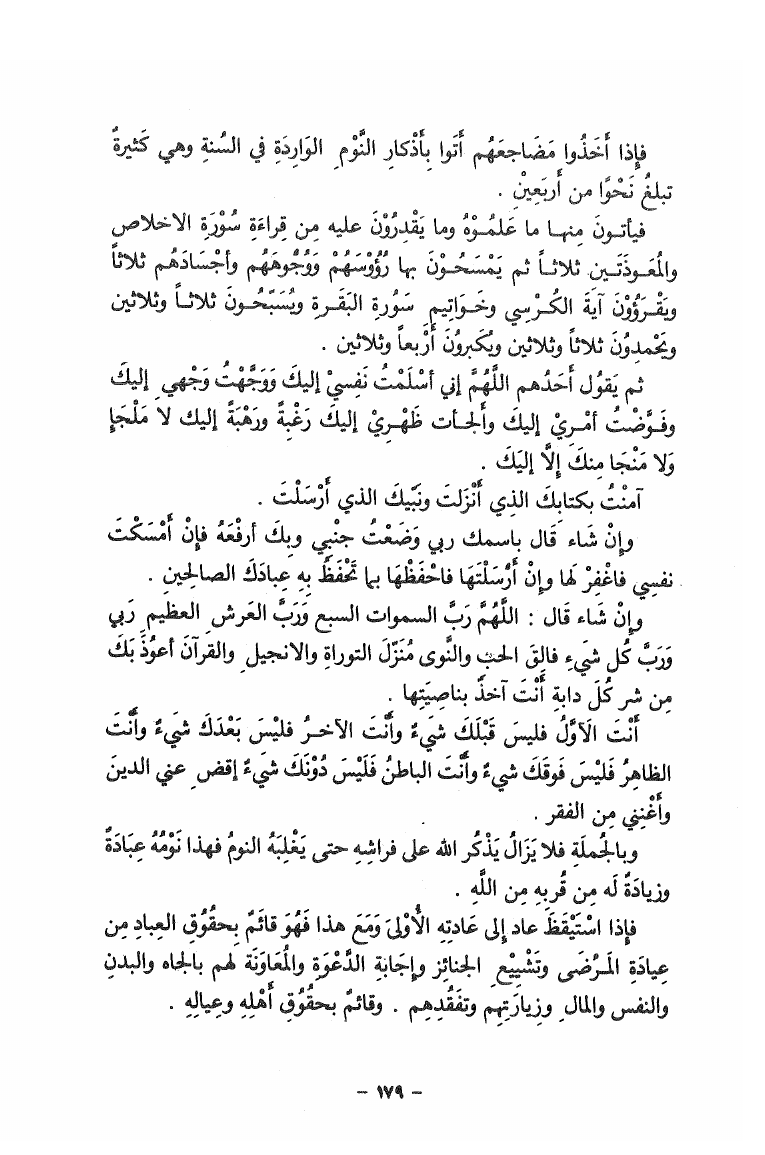 فإذا أَخَذُوا مَضَاجعَهُم أَتَوا بِأَذْكارِ النَّوْمِ الوَارِدَةِ في السُنةِ وهي كَثيرةٌ
تبلغُ نَحْوًا من أَربَعِيْن .
فيأتـونَ مِنهـا ما عَلمُـوْهُ وما يَقْدِرُوْنَ عليه مِن قِراءَةِ سُوْرَةِ الاخلاص
والمُعَـوذَتَـينِ ثلاثـاً ثم يَمْسَحُـوْنَ بها رُؤُوْسَهُمْ وَوُجُوهَهُم وأجْسَادَهُم ثلاثاً
ويَقْـرَؤُوْنَ آيَةَ الكُـرْسِي وخَـوَاتِيم سَورُةِ البَقَـرةِ ويُسَبِّحُـونَ ثلاثـاً وثلاثين
ويَحْمدِوُنَ ثلاثاً وثلاثين ويُكَبروُنَ أَربعاً وثلاثين .
ثم يَقوُل أَحَدُهم اللَّهُمَّ إني أسْلَمْتُ نَفسِيْ إليكَ وَوَجَّهْتُ وَجْهي إليكَ
وفَـوَّضْتُ أمْـرِيْ إليكَ وألجـأت ظَهْـرِيْ إليكَ رَغْبةً ورَهْبَةً إليك لا مَلْجَإ
وَلا مَنْجَا مِنكَ إلَّا إليَكَ .
آمنْتُ بكتابِكَ الذِي أَنْزَلتَ ونَبِيكَ الذي أَرْسَلْتَ .
وإنْ شَاء قَال باسمك ربي وَضَعْتُ جنْبي وبِكَ أرفْعَهُ فإنْ أَمْسَكْتَ
نفسِي فاغْفِرْ لها وإنْ أَرْسَلْتَهَا فاحْفَظْهَا بما تَحْفَظُ بِهِ عبادَكَ الصالحين .
وإنْ شاء قَال : اللَّهُمَّ رَبَّ السموات السبع وَرَبَّ العَرش العظيم رَبي
وَرَبَّ كُل شَيءٍ فالِقَ الحبِّ والنَّوى مُنَزّلَ التوراةِ والانجيل والقرآنَ أعوُذَ بَكَ
مِن شر كُلَ دابةٍ أَنْتَ آخذٌ بناصِيَتِها .
أَنْتَ الَاوَّلُ فليسَ قَبْلَكَ شَيءٌ وأَنْتَ الآخـرُ فليْسَ بَعْدَكَ شَيءٌ وأَنْتَ
الظاهِرُ فَليْسَ فَوقَكَ شيءٌ وأَنْتَ الباطنُ فَلَيْسَ دُوْنَكَ شَيءٌ إقض عني الدينَ
وأَغْنِنِي مِن الفقر .
وبالجُملَةِ فلا يَزَالُ يَذْكُر الله على فراشِهِ حتى يَغْلِبَهُ النومُ فهذا نَوْمُهُ عِبَادَةٌ
وزيادَةٌ لَه مِن قُربِهِ مِن اللَّهِ .
فإذا اسْتَيْقَظَ عاد إلى عَادتِهِ الأُوْلىَ وَمَعَ هذا فَهُوَ قائَمٌ بحقُوْقِ العِبادِ مِن
عِيادَةِ المَـرْضَى وتَشْيِيْع الجنائِز وإجَابةِ الدَّعْوَةِ والمُعَاوَنَة لهم بالجَاه والبدنِ
والنفس والمال وزِيارَتهِم وتفَقُدِهِم . وقائمٌ بحقُوُقِ أَهْلِهِ وعِيالِهِ .
– ١٧٩ –